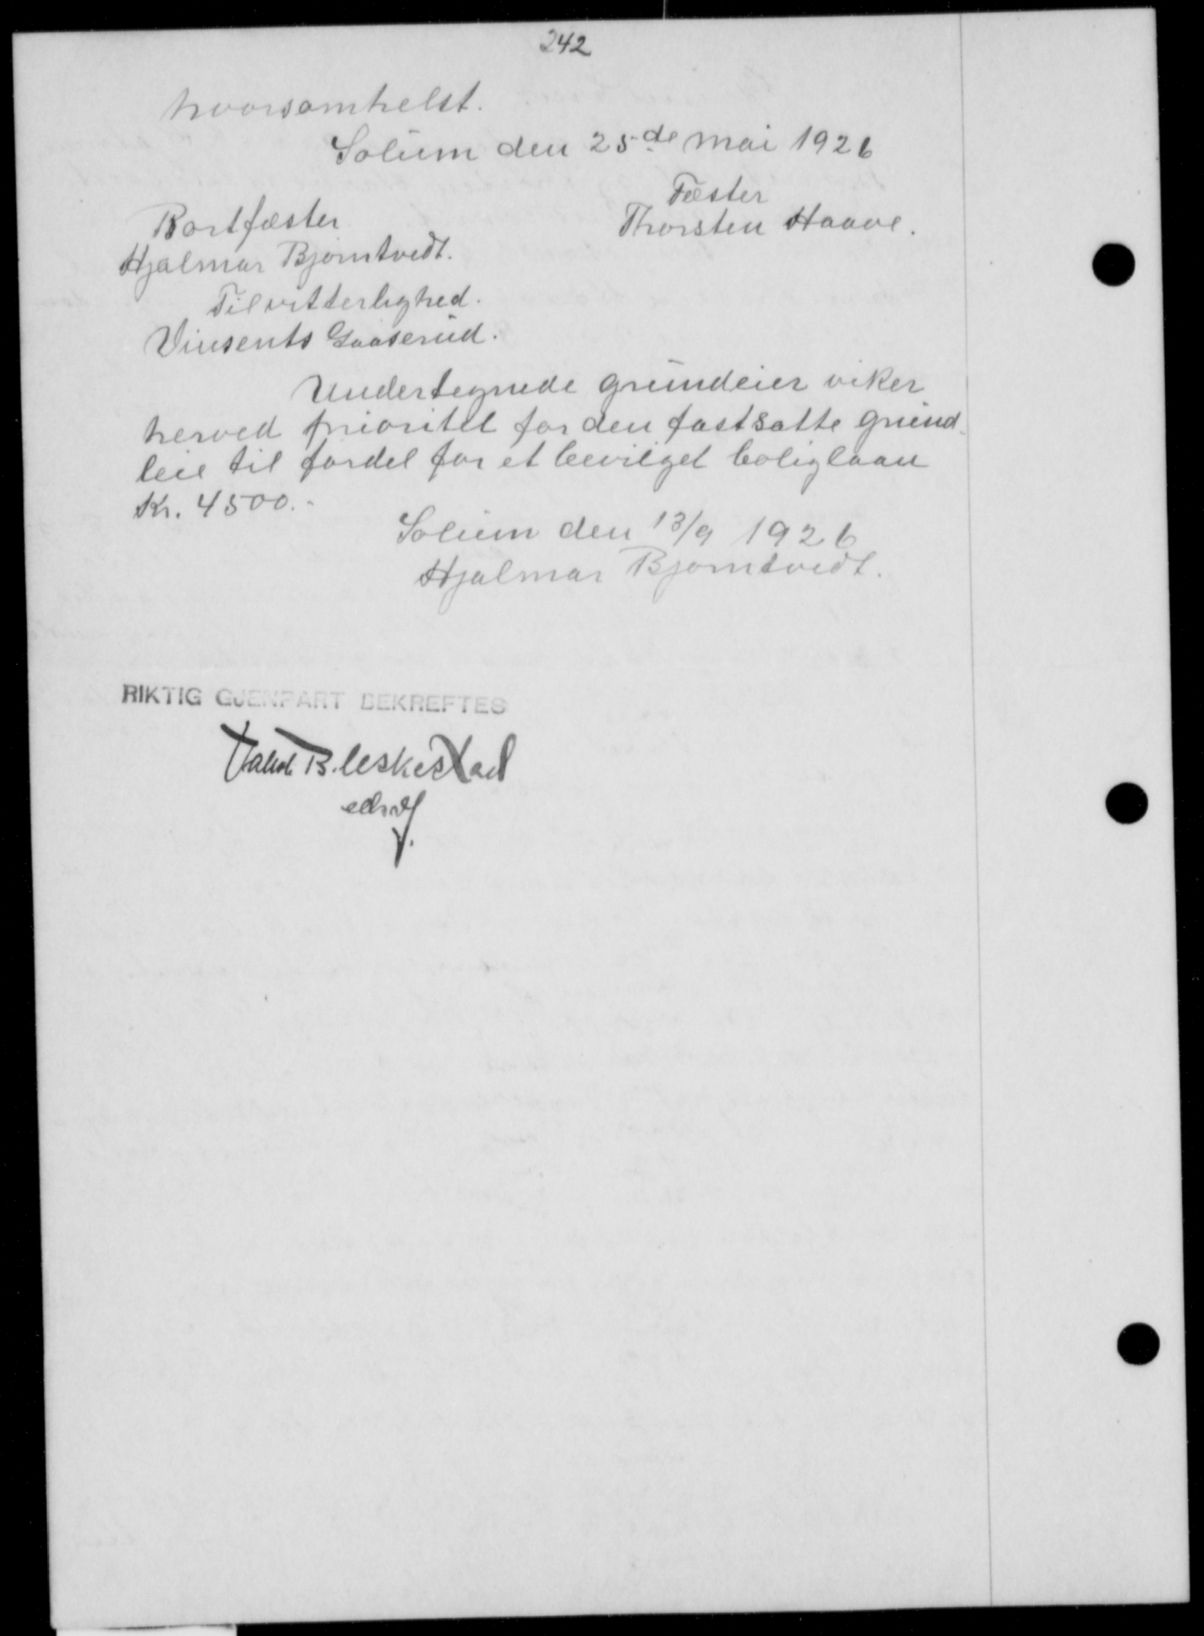 242
hvorsomhelst.
Solum den 25de mai 1926
Fæster
Bortfæster
Thorsten Haave.
Hjalmar Bjorntvedt.
Til vitterlighed.
Vinsents Gaaserud.
Undertegnede grundeier viker
herved prioritet for den fastsatte grund-
leie til fordel for et bevilget boliglaan
Kr. 4500.-
Solum den 13/9 1926
Hjalmar Bjorntvedt.
RIKTIG GJENPART BEKREFTES
Jakob B. Leskestad